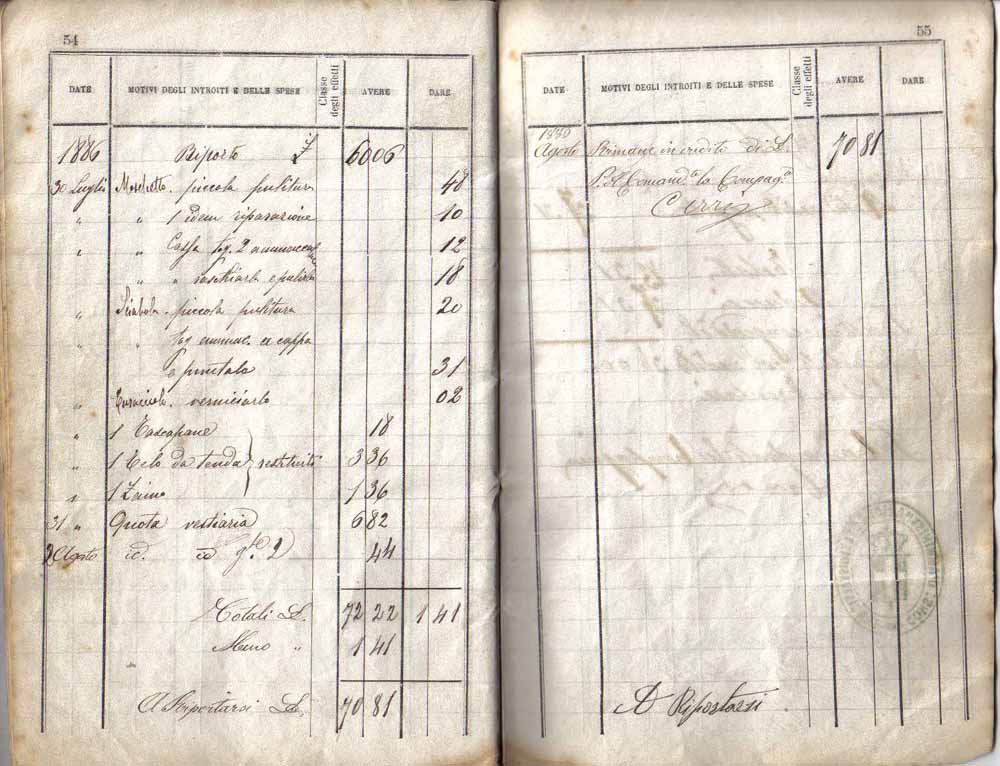 54
DATE MOTIVI DEGLI INTROITI E DELLE SPESE Classe degli effetti AVERE DARE
1886 Riporto L. 60 06
30 Luglio Moschetto. piccola pulitura 48
" " 1 idem riparazione 10
" " Cassa 12
" " " raschiarla e pulirla 18
" Sciabola. piccola pulitura 20
" " cappa
e puntale 31
" verniciarla 02
" 1 Tascapane 18
" 1 Telo da tenda restituiti 3 36
" 1 Zaino 1 36
31 " Quota vestiaria 6 82
2 Agosto id. id gte 2 44
Totali L. 72 22 1 41
Meno " 1 41
A Riportarsi L. 70 81
55
DATE MOTIVI DEGLI INTROITI E DELLE SPESE Classe degli effetti AVERE DARE
1886
Agosto Rimane in credito di L. 70 81
Il Comandte la Compaga
A Riportarsi